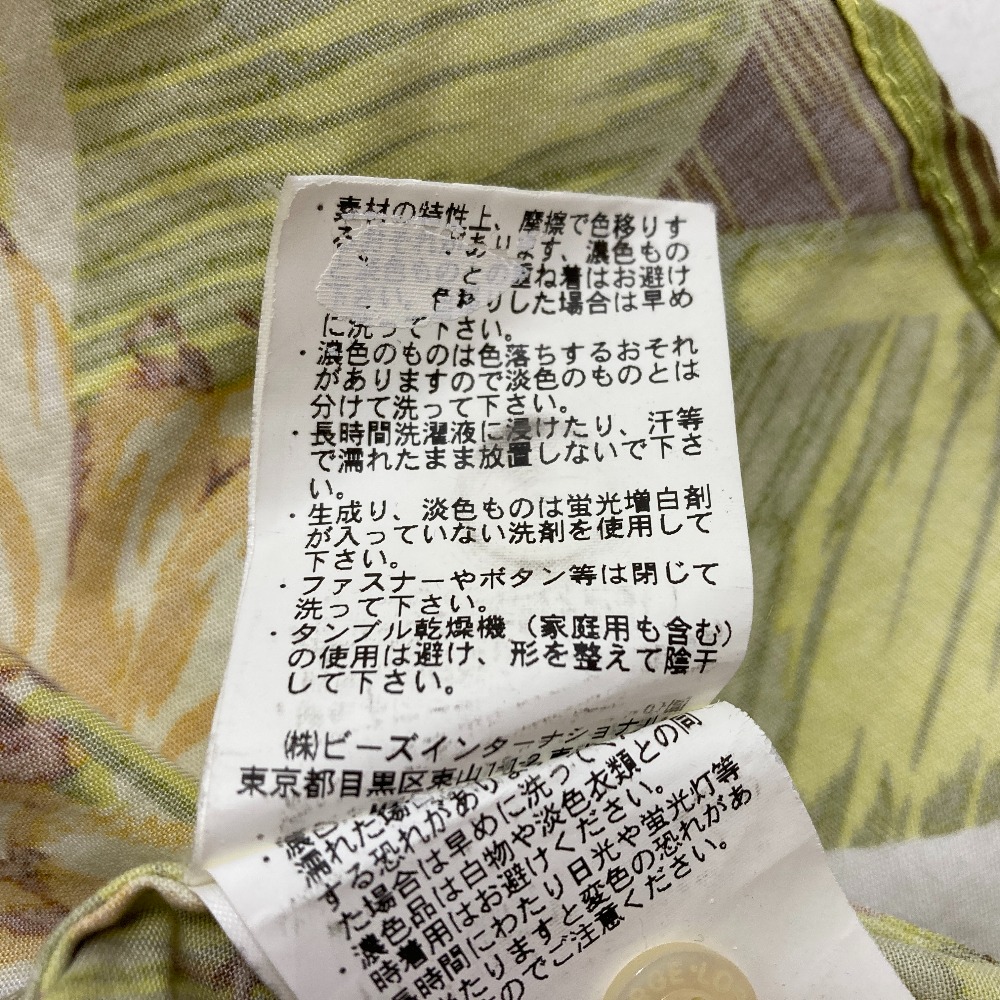 ・素材の特性上、摩擦で色移りす
あります、濃色もの
と重ね着はお避け
色移りした場合は早め
に洗って下さい。
・濃色のものは色落ちするおそれ
がありますので淡色のものとは
分けて洗って下さい。
・長時間洗濯液に浸けたり、汗等
で濡れたまま放置しないで下さ
い。
・生成り、淡色ものは蛍光増白剤
が入っていない洗剤を使用して
下さい。
・ファスナーやボタン等は閉じて
洗って下さい。
・タンブル乾燥機（家庭用も含む）
の使用は避け、形を整えて陰干
して下さい。
㈱ビーズインターナショナル
東京都目黒区東山1-1-2
濡れた場
する恐れがあり
た場合は早めに洗って、
・濃色品は白物や淡色衣類との同
時着用はお避けください。
・長時間にわたり日光や蛍光灯等
たりますと変色の恐れがあ
のでご注意ください。